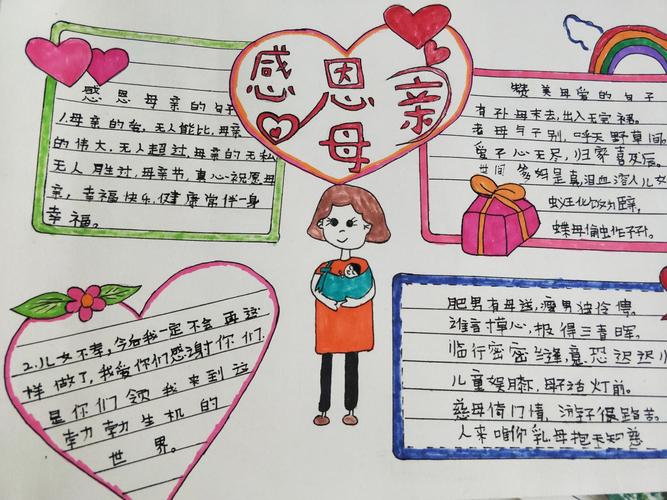 感恩母亲
感恩母亲的句子
1.母亲的爱,无人能比,母亲
的伟大,无人超过,母亲的无私
无人胜过,母亲节,衷心祝愿母
亲,幸福快乐,健康常伴一身
幸福。
赞美母爱的句子
有孙母未去,出入无完裙。
老母与子别,呼天野草间
爱子心无尽,归家喜及辰。
世间爹妈情最真,泪血溶入儿女
蝶母偷蚀作子孙。
2.儿女不孝,今后我一定不会再这
样做了,我爱你们感谢你们,
是你们领我来到这
勃勃生机的
世界。
肥男有母送,瘦男独伶俜。
谁言寸草心,报得三春晖。
临行密密缝,意恐迟迟
儿童娱膝,母子话灯前。
慈母倚门情,游子很路苦。
人来